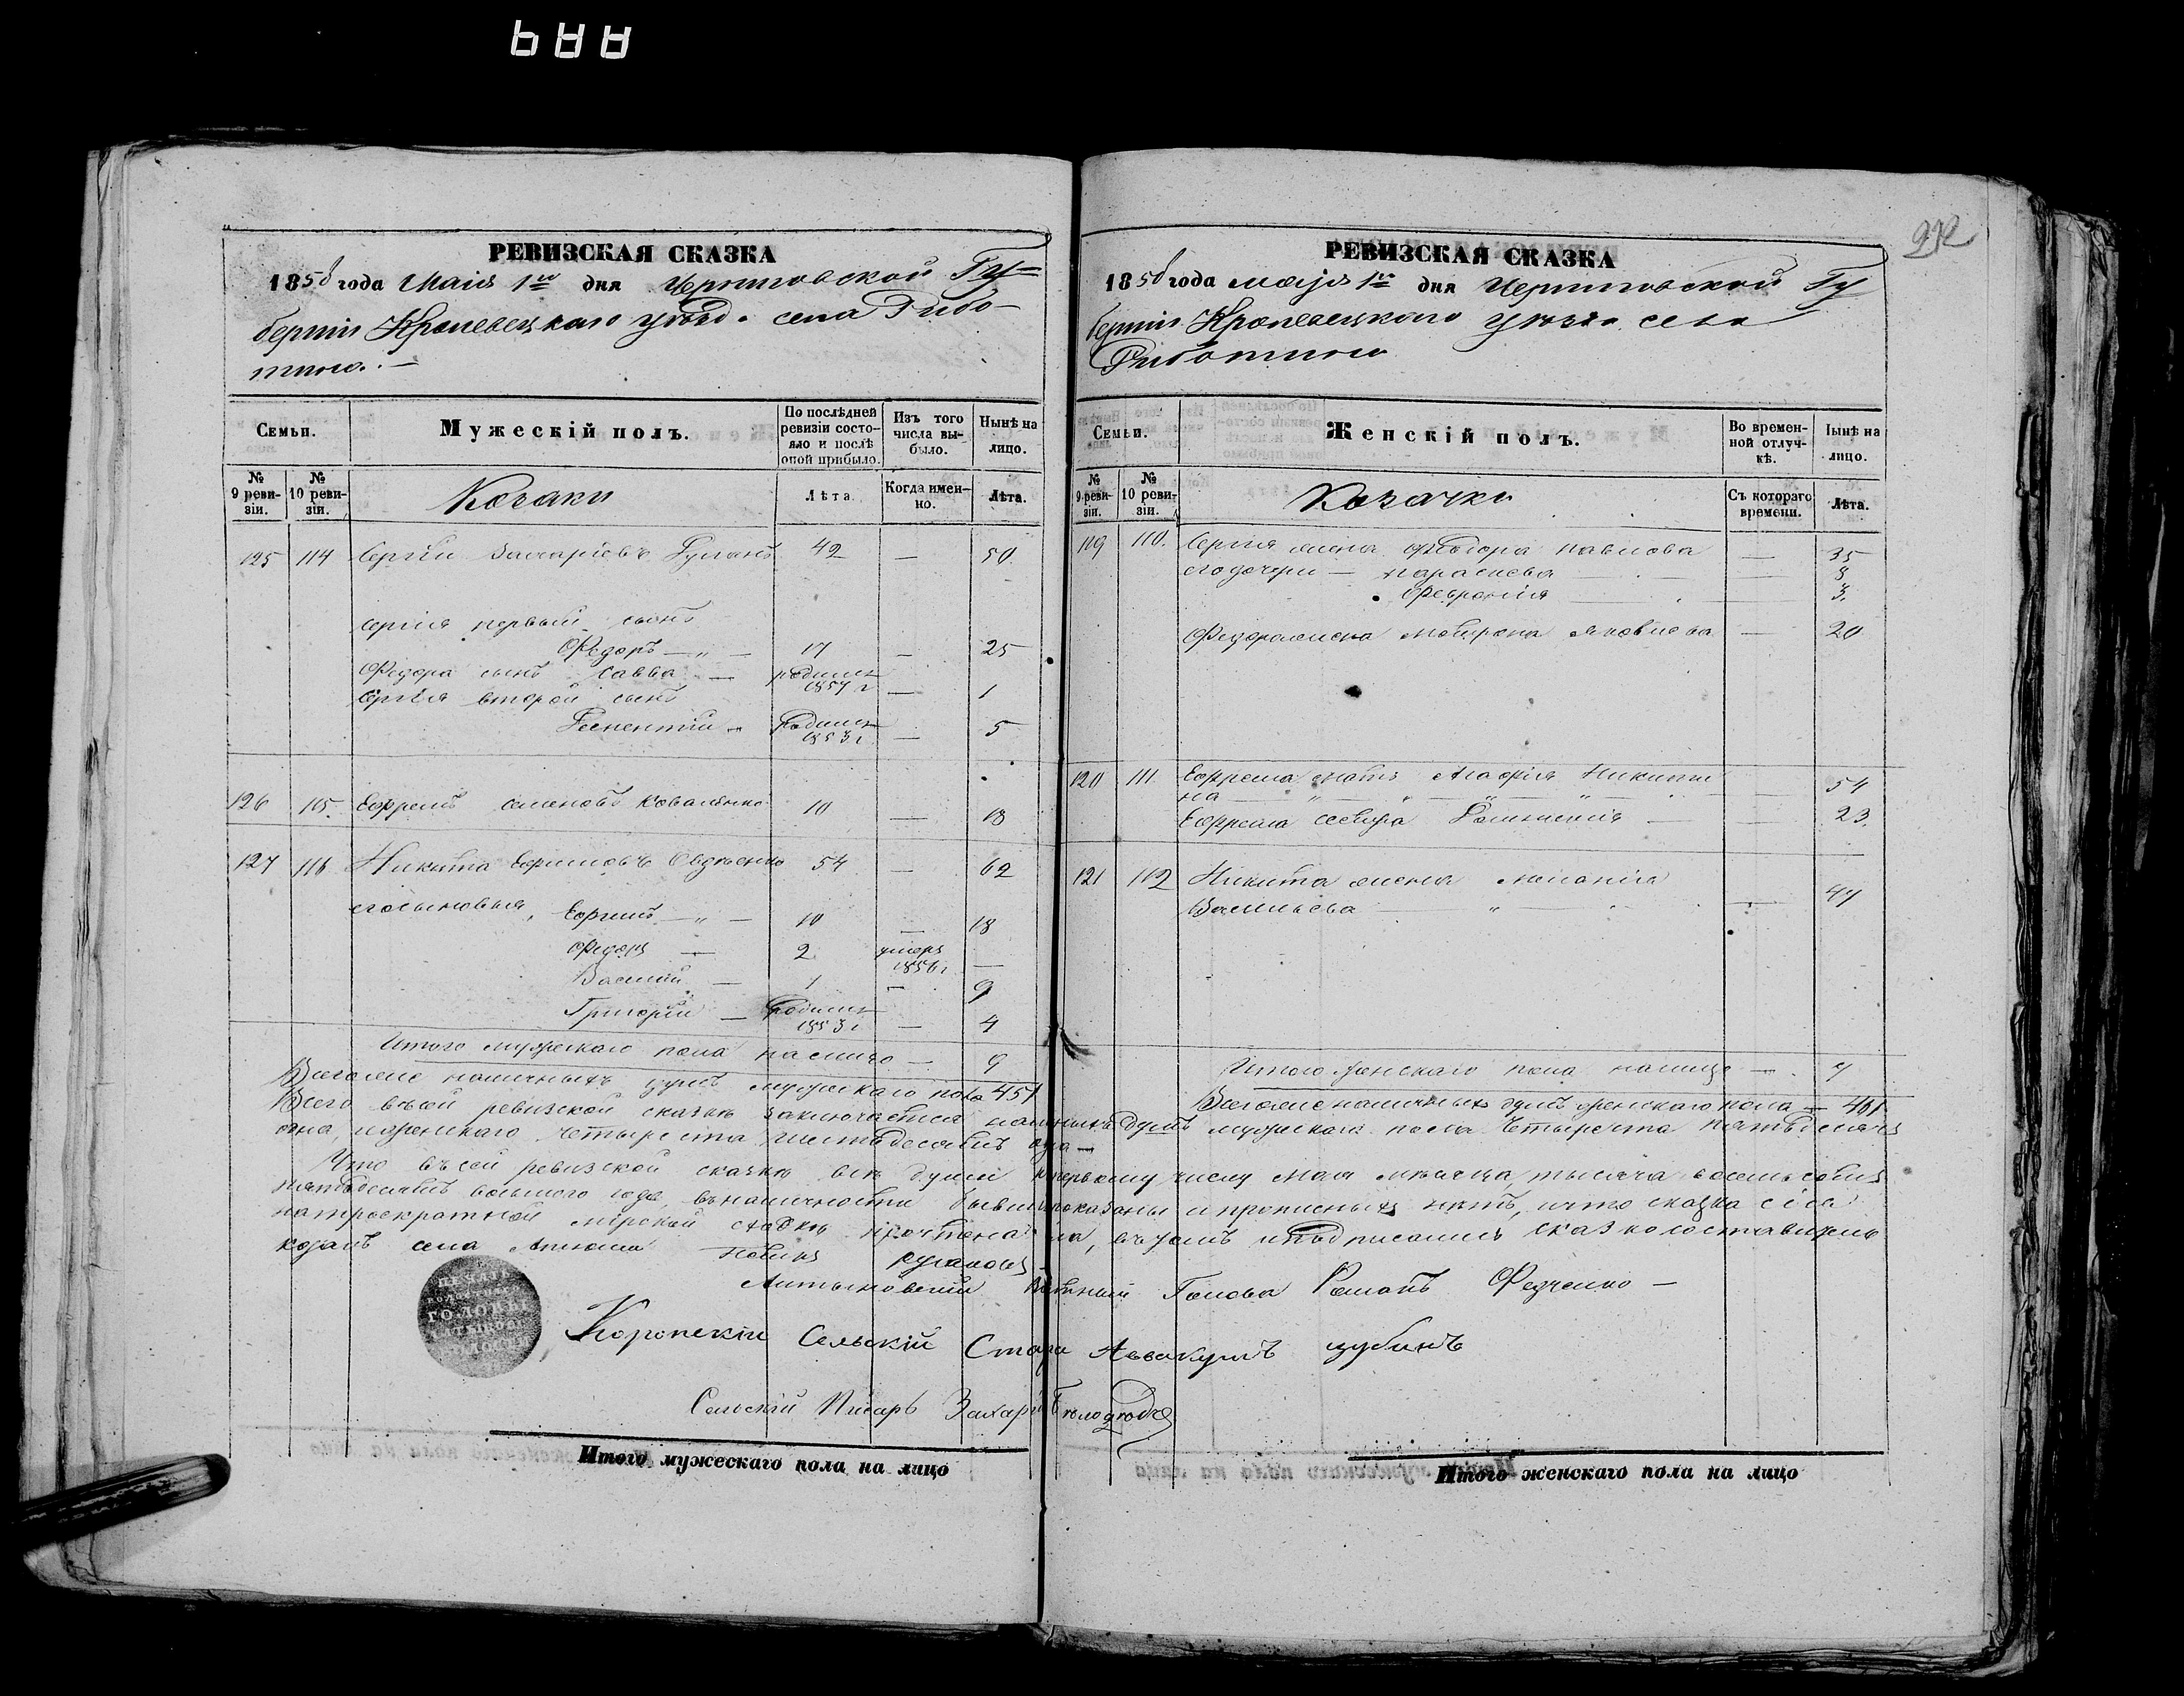 РЕВИЗСКАЯ СКАЗКА
1858 года Маія 1го дня Черниговской Гу-
берніи Кролевецкаго уѣзда села Рибо-
тина. —
Семьи.
Мужескій полъ.
По послѣдней ревизіи состояло и послѣ оной прибыло.
Изъ того числа выбыло.
Нынѣ на лицо.
№ 9 ревизіи.
№ 10 ревизіи.
Козаки
Лѣта.
Когда именно.
Лѣта.
125 114 Сергій Захаріевъ 42 — 50.
Сергія первый сынъ
Федоръ — " — 17 — 25
Федора сынъ Савва — родился 1857 г — 1
Сергія второй сынъ
родился 1853 г. — 5
126 115. Ефремъ Семеновъ Коваленко 10 — 18
127 116 Никита Ефимовъ 54 — 62
его сыновья, Ефимъ — " — 10 — 18
Федоръ — 2 умеръ 1856 г. —
Василій — 1 — 9
Григорій — родился 1853 г. — 4
Итого мужескаго пола на лицо — 9
Всего же наличныхъ душъ мужескаго пола 451
РЕВИЗСКАЯ СКАЗКА
1858 года маія 1го дня Черниговской Гу
берніи Кролевецкаго уѣзда села
Риботина
Семьи.
Женскій полъ.
Во временной отлучкѣ.
Нынѣ на лицо.
№ 9 ревизіи.
№ 10 ревизіи.
Козачки
Съ котораго времени.
Лѣта.
119 110. Сергія жена Федора Павлова — 35
его дочери — Параскева — 8
Феврония — 3.
Федора жена Яковлева — 20
120 111 Ефрема мать Агафія Никити
на — " — 54
Ефрема сестра — 23.
121 112 Никита жена Меланія
Васильева — " — 47
Итого женскаго пола на лицо — 7
Всего же наличныхъ душъ женскаго пола — 461
Всего въ сей ревизской сказкѣ заключается наличныхъ душъ мужескаго пола Четыреста пятьдесятъ
одна, и женскаго Четыреста шестьдесятъ одна —
Что въ сей ревизской сказкѣ всѣ души къ первому числу Мая мѣсяца тысяча восемьсотъ
пятьдесятъ восьмого года въ наличности бывши показаны и прописныхъ нѣтъ, и что сказка сія
на троекратной мірской сходкѣ прочтена въ томъ и подписались сказкосоставитель
козакъ села
Голова Романъ Федченко —
Коропскій Сельскій Стар Аввакумъ
Сельскій Писарь Захарій
Итого мужескаго пола на лицо
Итого женскаго пола на лицо